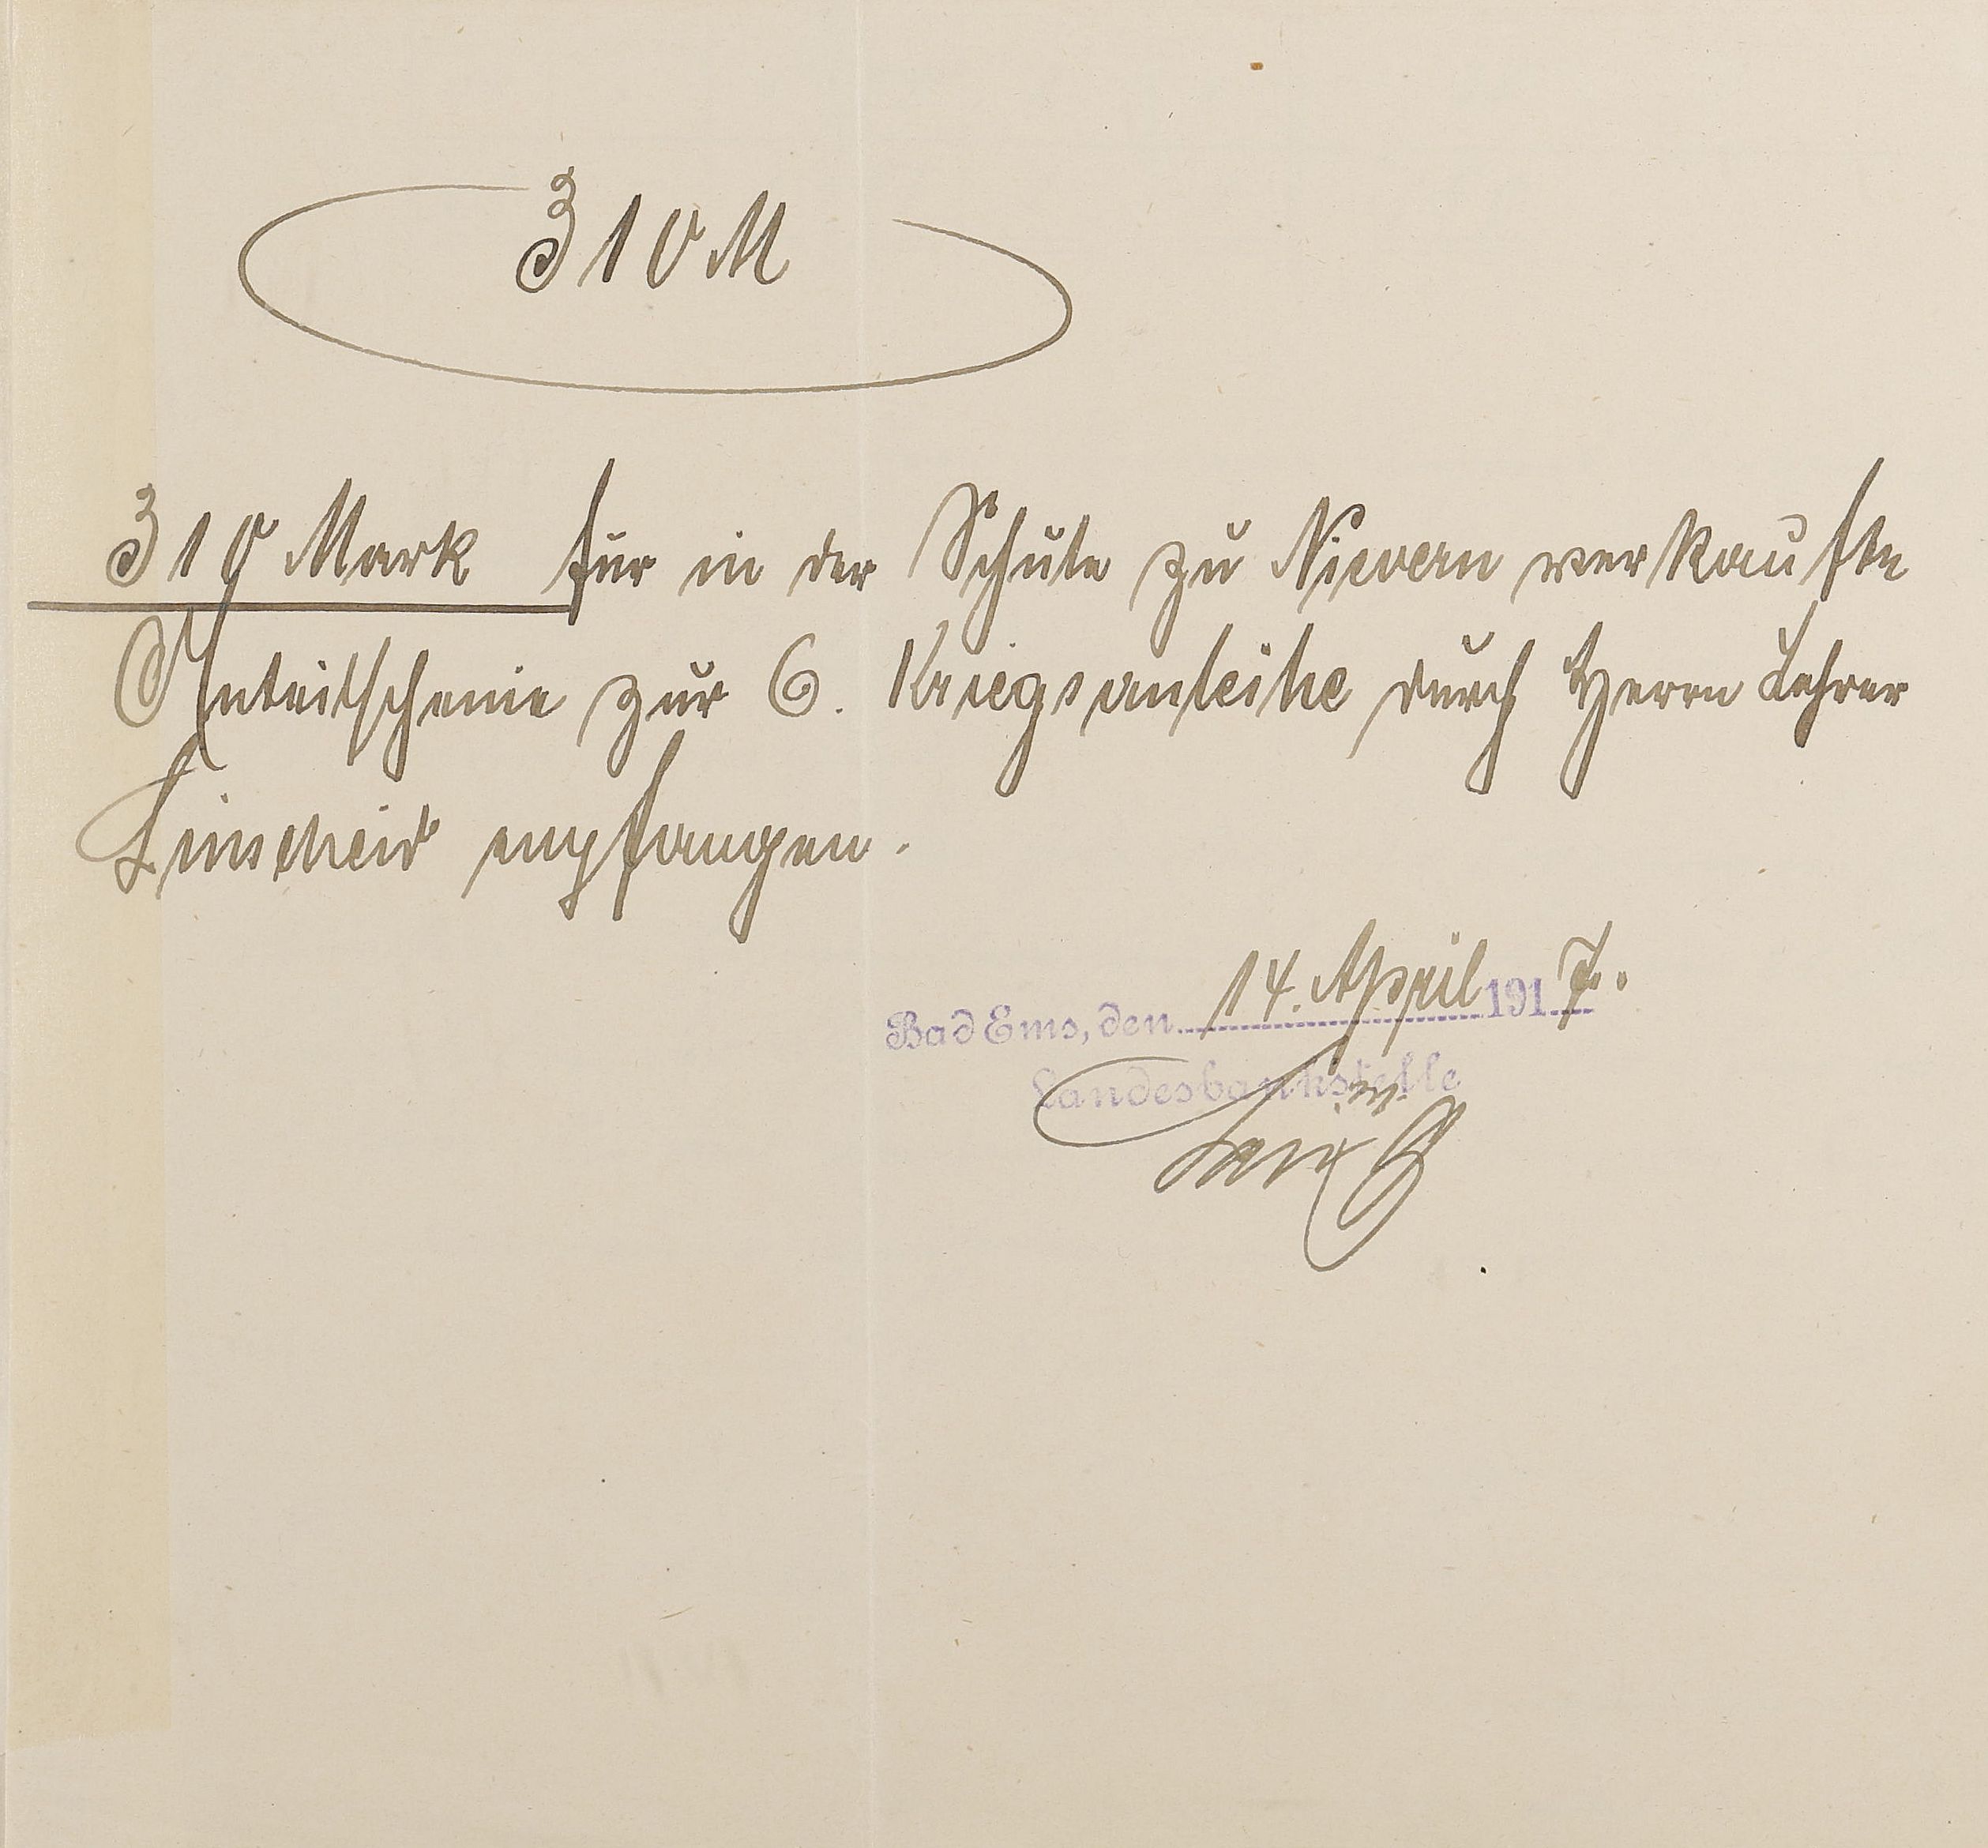 310 M
310 Mark für in der Schule zu Nievern verkaufte
Anteilscheine zur 6. Kriegsanleihe durch Herrn Lehrer
Linscheid empfangen.
Bad Ems, den 14. April 1917.
Landesbankstelle